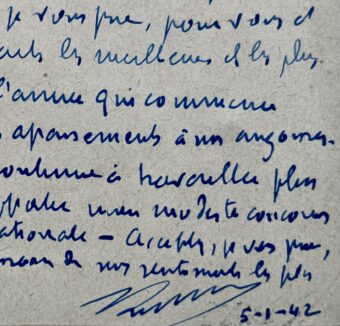 je vous prie, pour vous et
les meilleurs et les plus
l'année qui commence
apaisements à nos angoisses.
continue à travailler plus
mon modeste concours
nationale – Acceptez, je vous prie,
de mes sentiments les plus
5-1-42